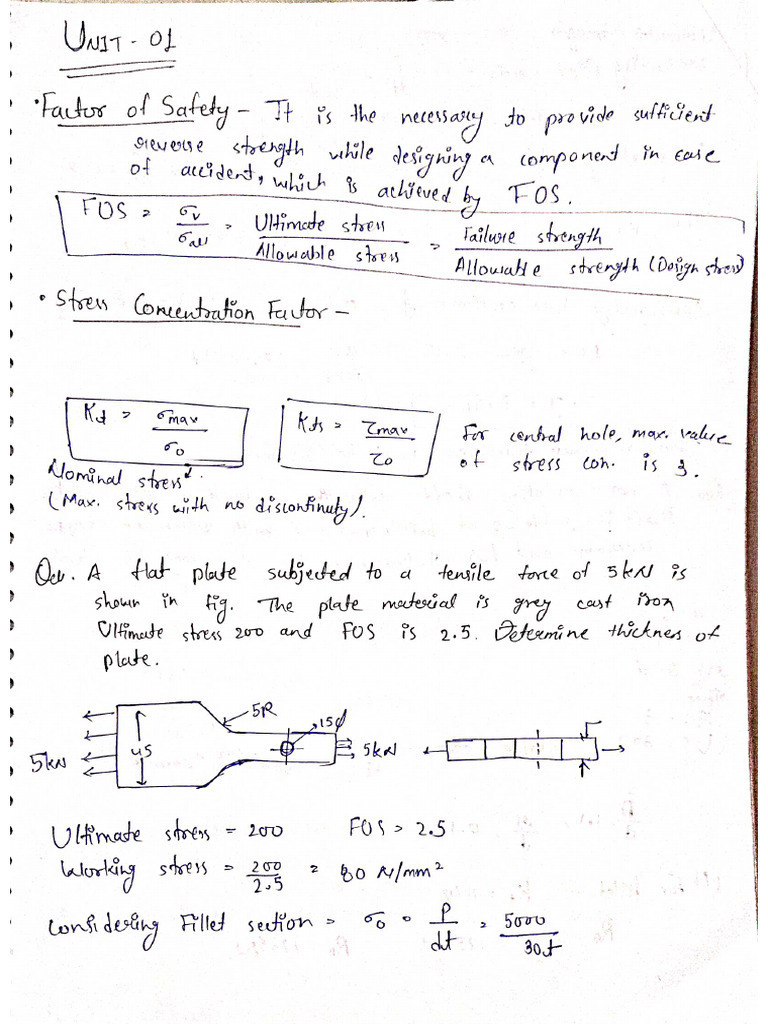 UNIT - 01
• Factor of Safety - It is the necessary to provide sufficient
reverse strength while designing a component in case
of accident, which is achieved by FOS.
FOS = σu/σall = Ultimate stress/Allowable stress = Failure strength/Allowable strength (Design stress)
• Stress Concentration Factor -
Kt = σmax/σo
Kts = τmax/τo
For central hole, max. value
of stress con. is 3.
Nominal stress
(Max. stress with no discontinuty).
Que. A flat plate subjected to a tensile force of 5kN is
shown in fig. The plate material is grey cast iron
Ultimate stress 200 and FOS is 2.5. Determine thickness of
plate.
5R
15φ
45
5kN
5kN
Ultimate stress = 200 FOS = 2.5
Working stress = 200/2.5 = 80 N/mm²
Considering Fillet section = σo = P/dt = 5000/30t